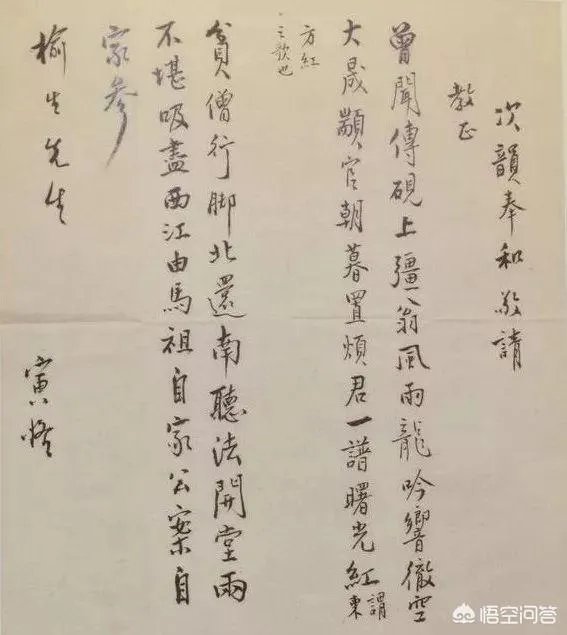 次韻奉和敬請
教正
曾聞傳硯上彊翁風雨龍吟響徹空
大晟顓官朝暮置煩君一譜曙光紅謂東
方紅
之歌也
貧僧行脚北還南聽法開堂兩
不堪吸盡西江由馬祖自家公案自
家參
榆生先生
寅恪
悟空问答